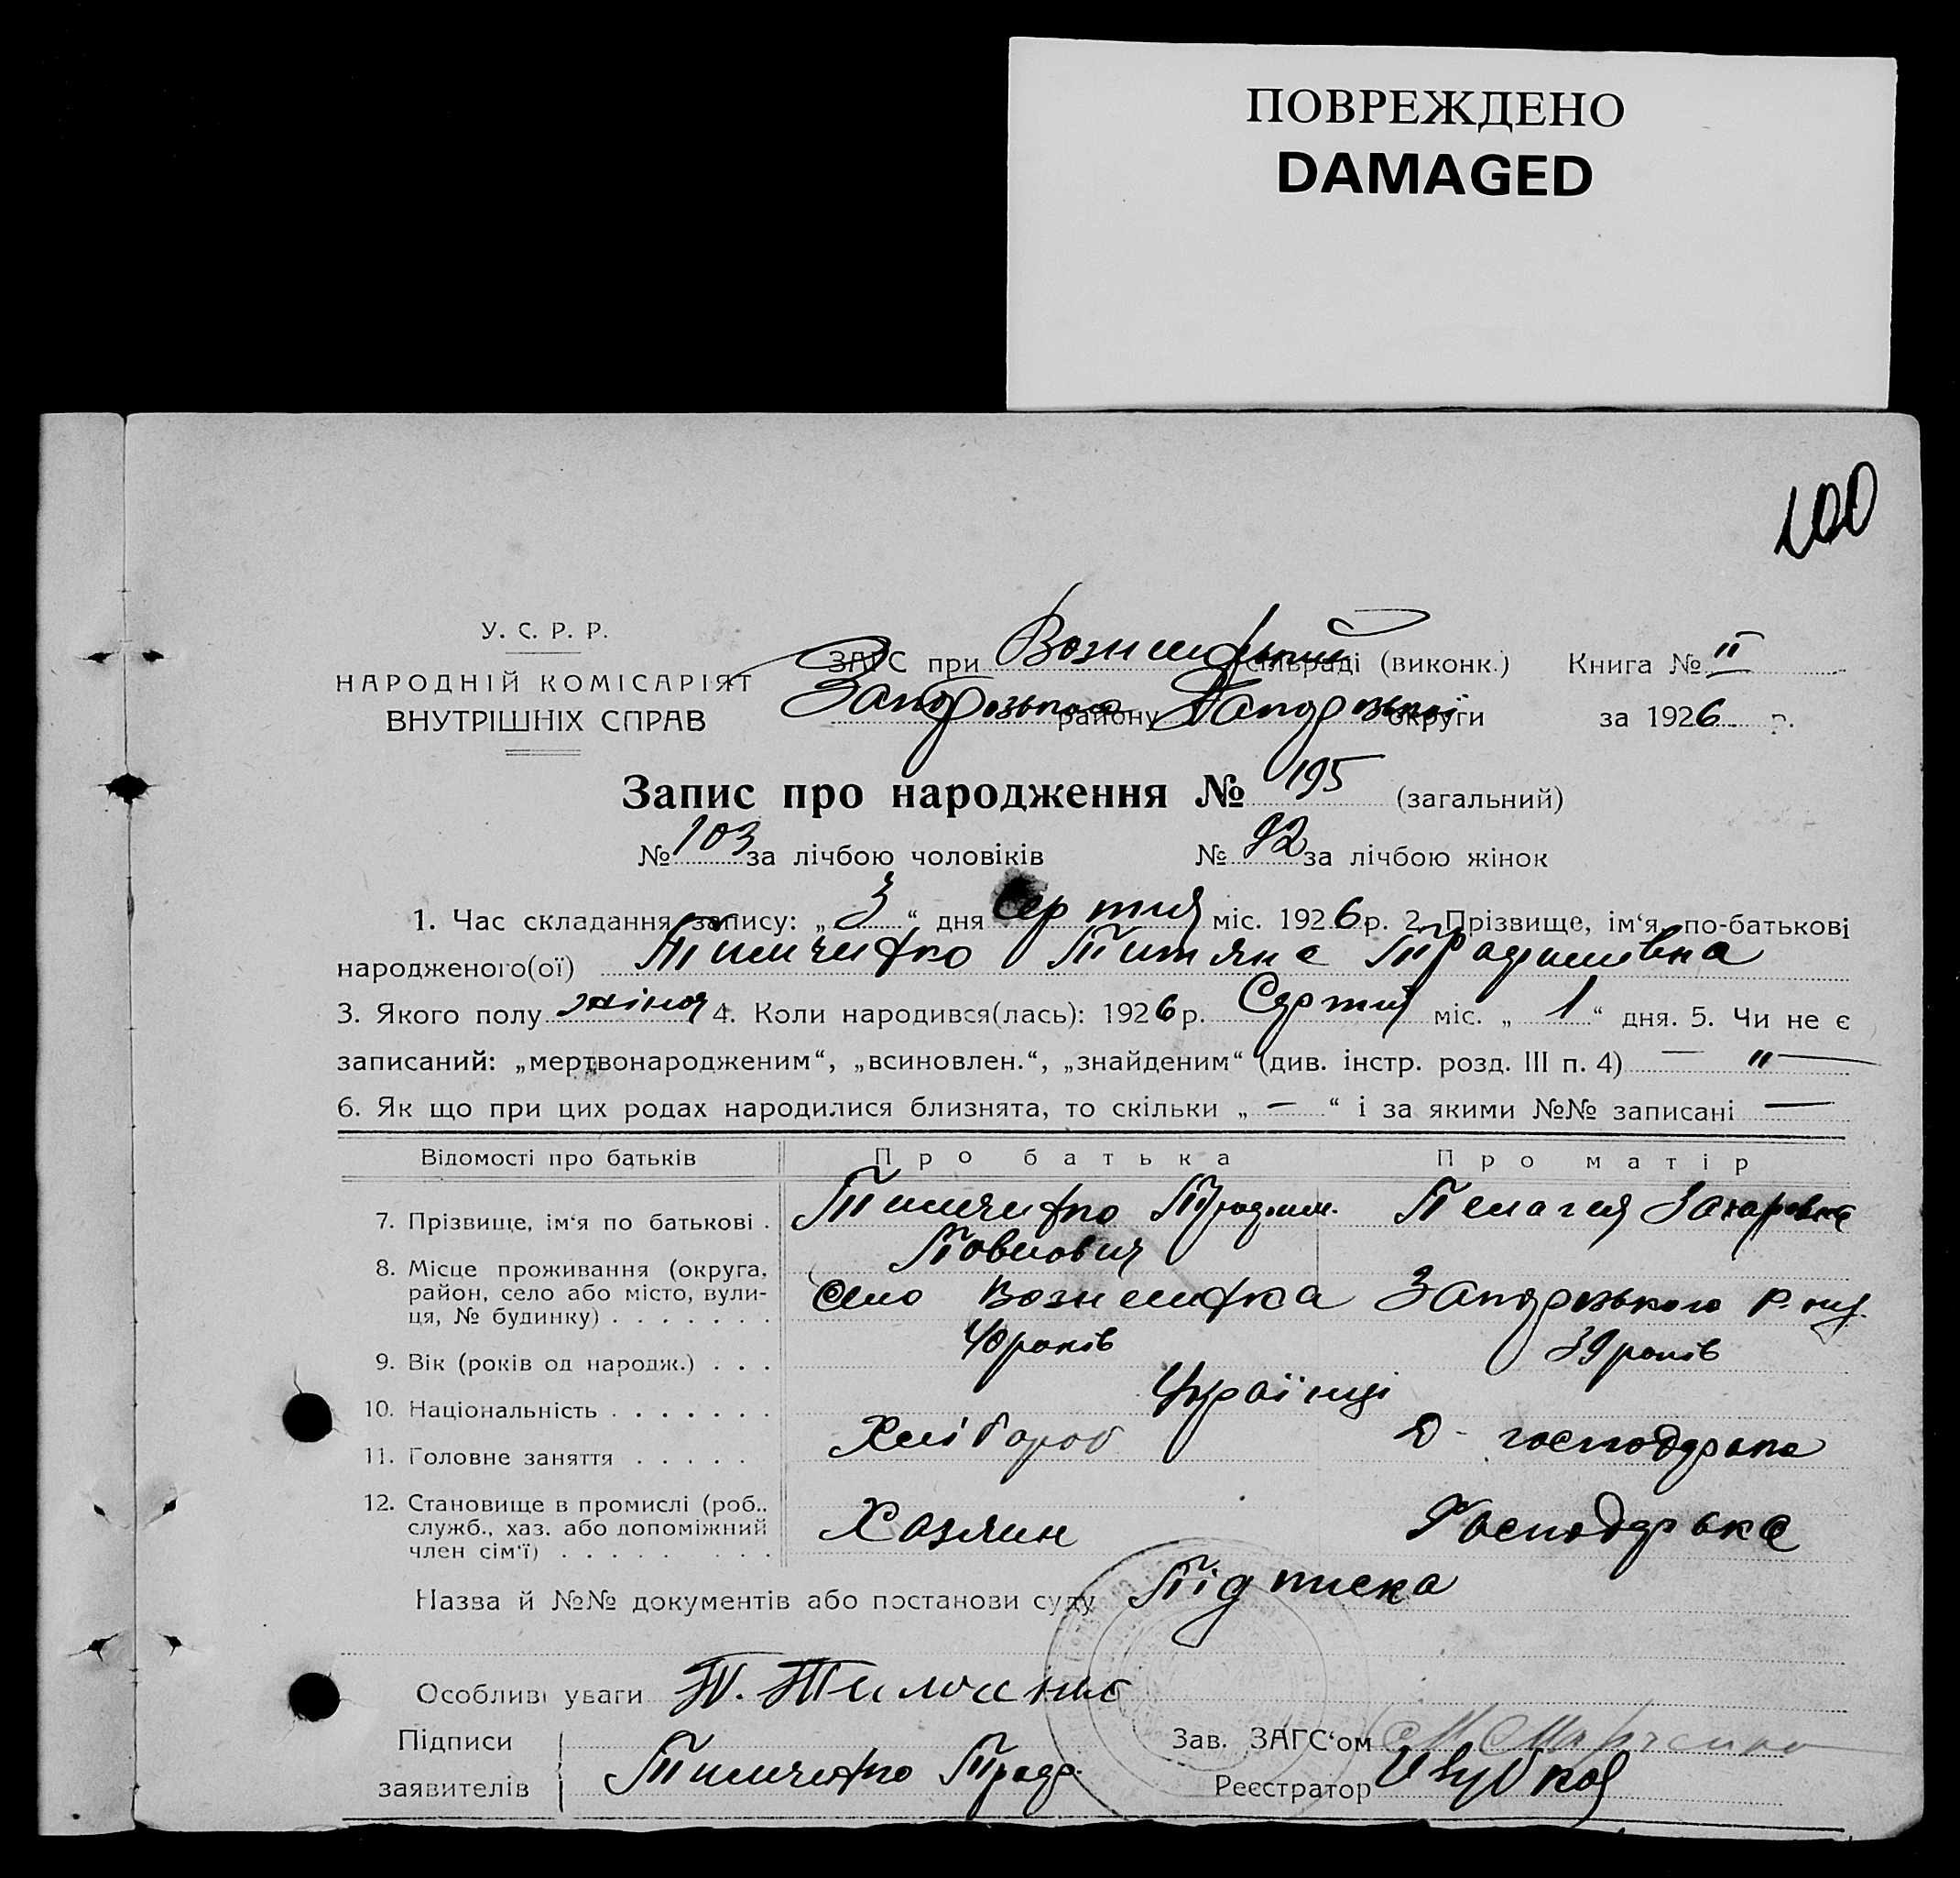 ПОВРЕЖДЕНО
DAMAGED
100
У. С. Р. Р.
НАРОДНІЙ КОМІСАРІЯТ
ВНУТРІШНІХ СПРАВ
ЗАГС при сільраді (виконк.) Книга № II
Запорозького району Запорозької округи за 1926 р.
Запис про народження № 195 (загальний)
№ 103 за лічбою чоловіків № 92 за лічбою жінок
1. Час складання запису: „ 3 “ дня Серпня міс. 1926 р. 2. Прізвище, ім‘я, по-батькові
народженого(ої)
3. Якого полу жіноч 4. Коли народився(лась): 1926 р. Серпня міс. „ 1 “ дня. 5. Чи не є
записаний: „мертвонародженим“, „всиновлен.“, „знайденим“ (див. інстр. розд. III п. 4) — " —
6. Як що при цих родах народилися близнята, то скільки „ — “ і за якими №№ записані —
Відомості про батьків Про батька Про матір
7. Прізвище, ім‘я по батькові . Пелагея Захаровна
Павлович
8. Місце проживання (округа,
район, село або місто, вули-
ця, № будинку) . . . . . . . Село Вознесенка Запорозького
9. Вік (років од народж.) . . . 40 років 39 років
10. Національність . . . . . . . Українці
11. Головне заняття . . . . . Хлібороб Д - господарка
12. Становище в промислі (роб.,
служб., хаз. або допоміжний
член сім‘ї) . . . . . . . . Хазяин Господарка
Назва й №№ документів або постанови суду Підписка
Особливі уваги
Підписи
заявителів
Зав. ЗАГС‘ом
Реєстратор